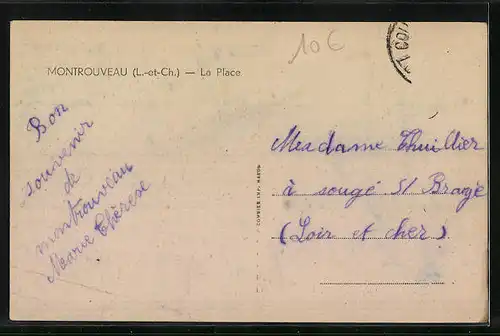 10€
MONTROUVEAU (L.-et-Ch.) — La Place
Bon
souvenir
de
montrouveau
Marie Thérèse
COMBIER IMP. MACON
Mesdame Thuillier
à sougé S/ Braye
(Loir et cher)